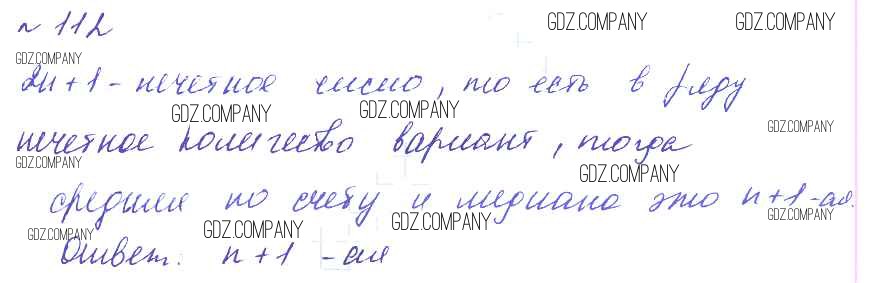 № 112
GDZ.COMPANY GDZ.COMPANY
GDZ.COMPANY
2n+1 - нечетное число, то есть в ряду
GDZ.COMPANY GDZ.COMPANY
GDZ.COMPANY
нечетное количество вариант, тогда
GDZ.COMPANY GDZ.COMPANY
средняя по счету и медиана это n+1-ая.
GDZ.COMPANY
GDZ.COMPANY GDZ.COMPANY GDZ.COMPANY
Ответ: n+1 -ая